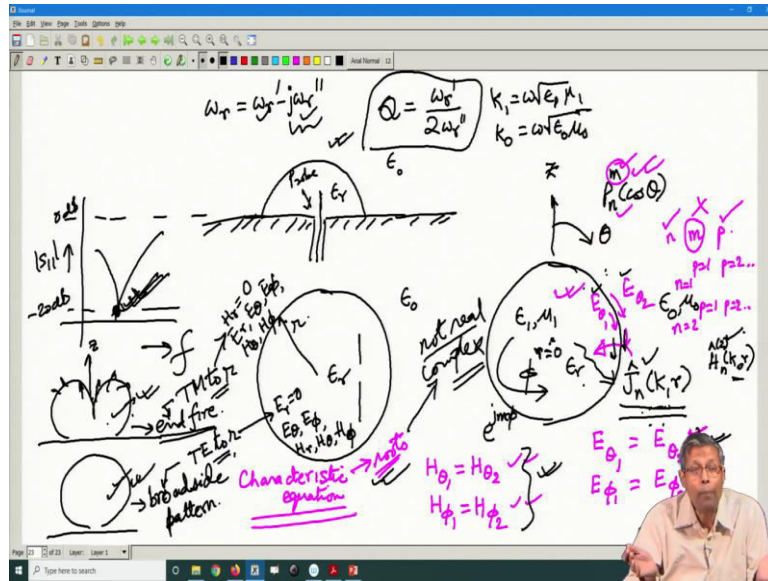 Journal
File Edit View Page Tools Options Help
Arial Normal 12
ωr = ωr' - jωr''
Q = ωr' / 2ωr''
K₁ = ω√ε₁μ₁
K₀ = ω√ε₀μ₀
ε₀
Probe
εr
z
θ
m
Pn (cosθ)
n m p
p=1 p=2..
n=1
p=1 p=2..
n=2
0 db
|S11| ↑
-20db
→ f
z
end fire.
TM to r
Hr=0
Er, Eθ, Eφ,
Hθ, Hφ
r
εr
ε₀
Er=0
Eθ, Eφ
Hr, Hθ, Hφ
TE to r
broadside
pattern.
not real
complex
Characteristic → roots
equation
ε₁, μ₁
r=0
εr
φ
e^jmφ
Eθ₁
Eθ₂
ε₀, μ₀
Ĵn(K₁r)
Hn(K₀r)
Hθ₁ = Hθ₂
Hφ₁ = Hφ₂
Eθ₁ = Eθ
Eφ₁ = Eφ
Page 23 of 23 Layer: Layer 1
Type here to search